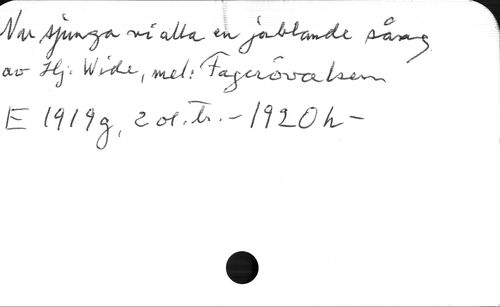 Nu sjunga vi alla en jublande sång
av Hj. Wide, mel: Fagerövalsen
E 1919g, 2 ol. tr. - 1920 h -